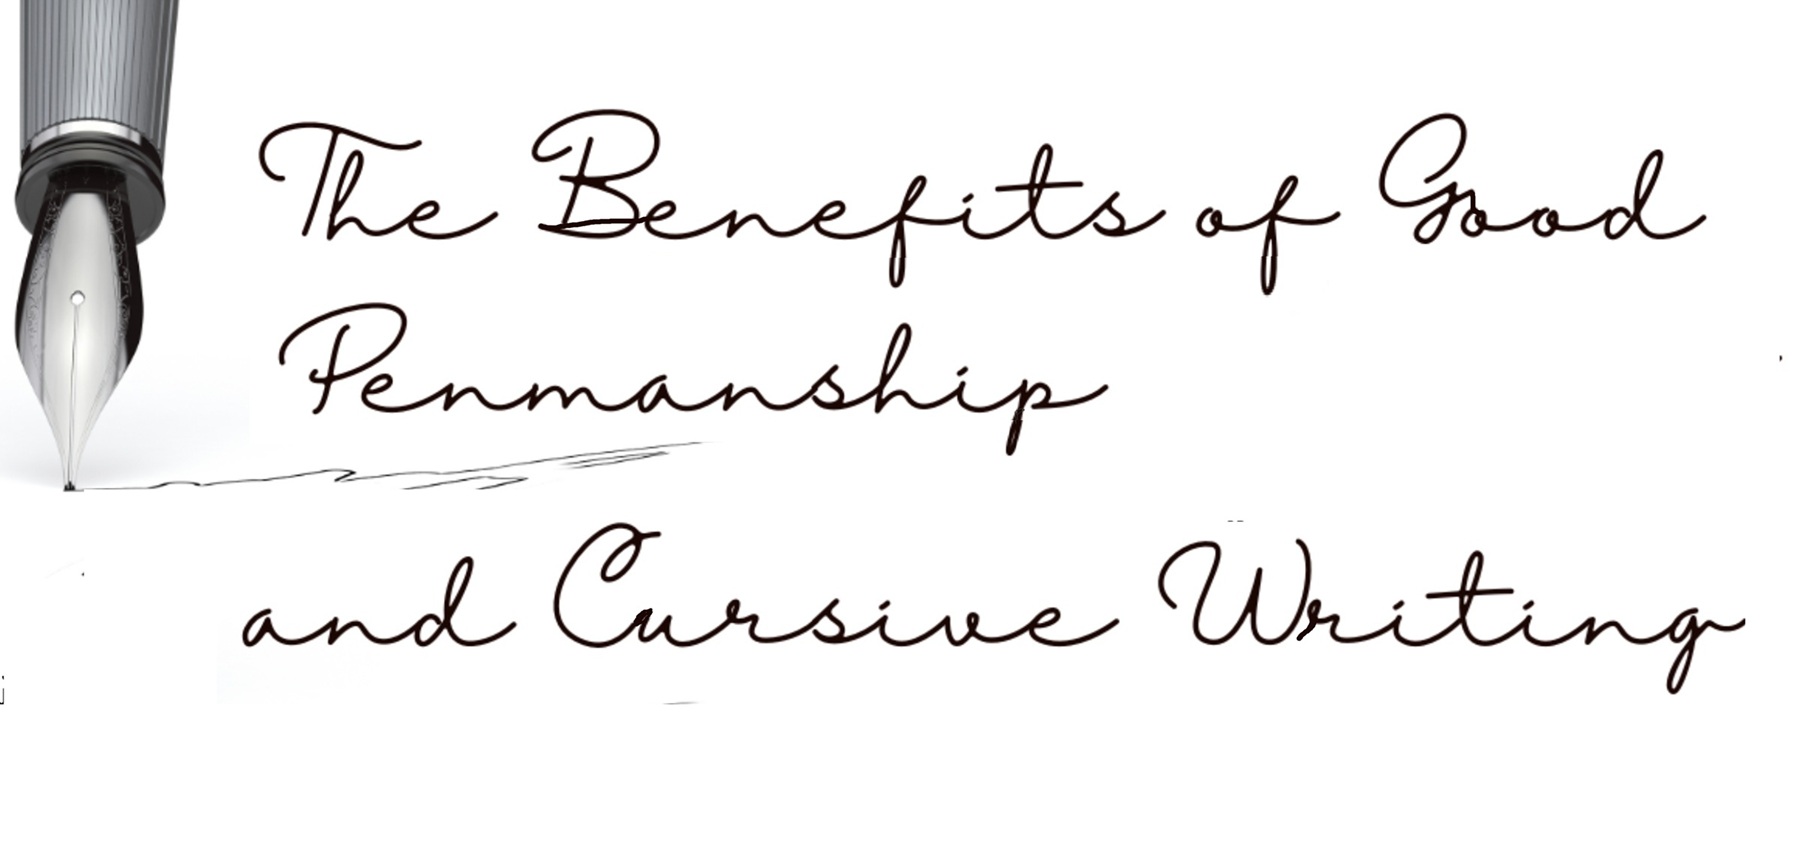 The Benefits of Good
Penmanship
and Cursive Writing